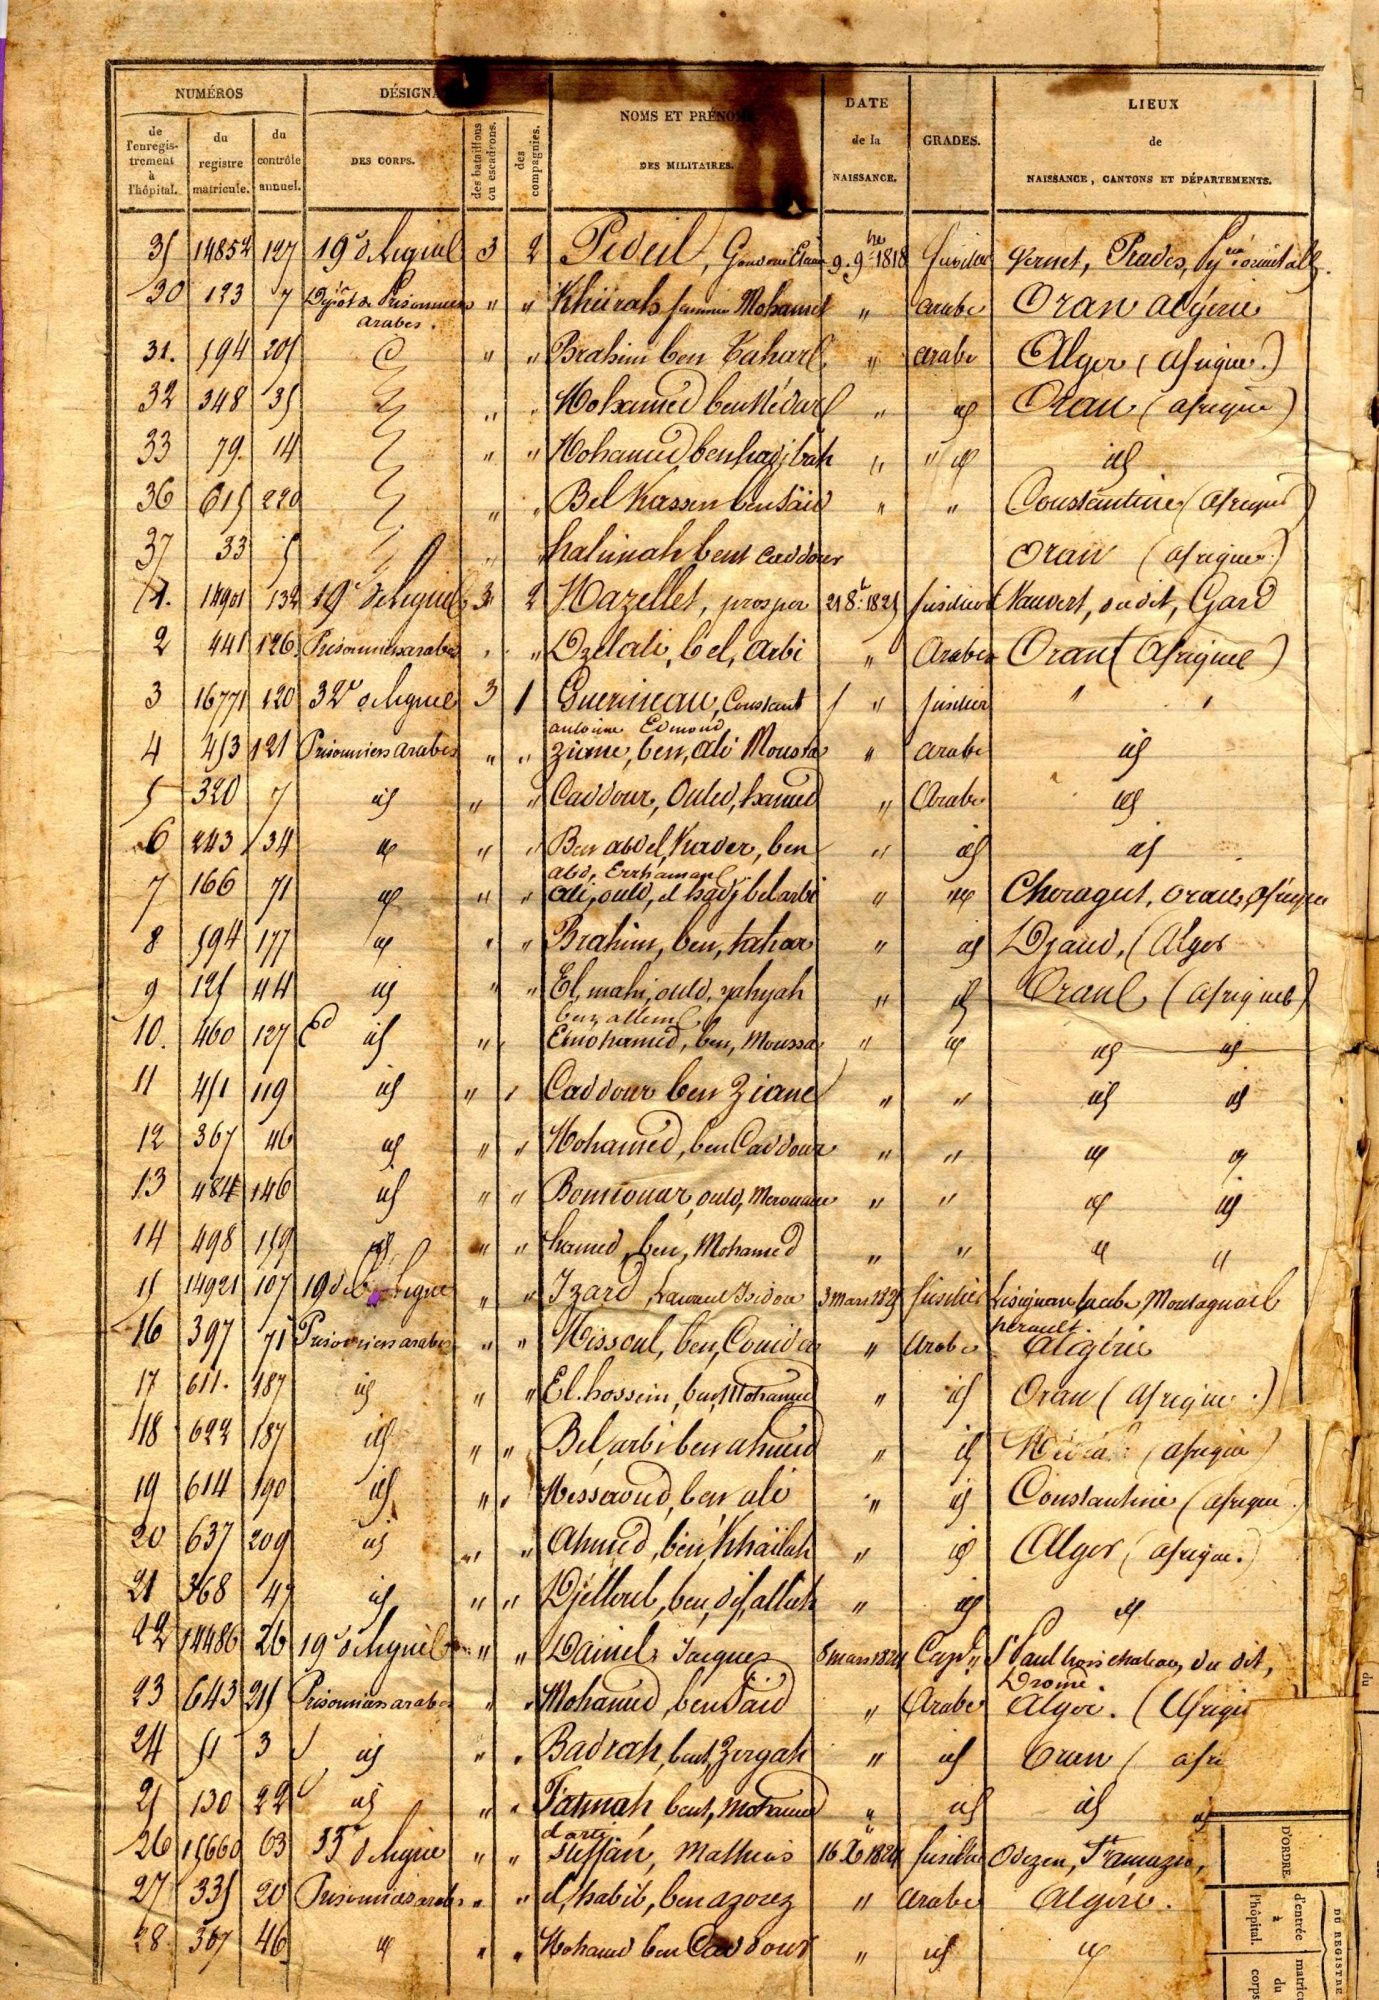 NUMÉROS
DÉSIGNA
NOMS ET PRÉNOMS
DES MILITAIRES.
DATE
de la
NAISSANCE.
GRADES.
LIEUX
de
NAISSANCE, CANTONS ET DÉPARTEMENTS.
de
l'enregis-
trement
à
l'hôpital.
du
registre
matricule.
du
contrôle
annuel.
DES CORPS.
des bataillons
ou escadrons.
des
compagnies.
35 14852 127 19e de ligne 3 2 Pedeil, 9. 9bre 1818 fusilier Vernet, Prades,
30 123 7 Dépôt de Prisonniers " " Khiirah femme Mohamed " arabe Oran algérie
arabes.
31. 594 205 " " Brahim ben Tahar " arabe Alger (afrique.)
32 348 35 " " Mohamed ben " id Oran (afrique)
33 79. 14 " " Mohamed ben " " id id
36 615 220 " " Bel Kassen ben Saïd " " Constantine (afrique)
37 33 5 " " halimah bent Caddour Oran (afrique.)
1. 14901 132 19e de ligne 3 2 Mazellet, prosper 21 8bre 1825 fusilier Vauvert, du dit, Gard
2 441 126. Prisonniers arabes " " Dzelali, bel, arbi " Arabe Oran (afrique)
3 16771 120 32e de ligne 3 1 Guerineau, Constant " fusilier " "
antoine Edmond
4 453 121 Prisonniers arabes " " Ziane, ben, ali Mousta " arabe id
5 320 7 id " " Caddour, Ouled, hamed " Arabe id
6 243 34 id " " Ben abdel, Kader, ben " id id
abd, Errhaman
7 166 71 id " " ali, ould, el hadj bel arbi " id Cheragut, oran, afrique
8 594 177 id " " Brahim, ben, tahar " id Djaud, (Alger
9 125 44 id " " El, mahi, ould, yahyah " id Oran (afrique)
ben, allem
10. 460 127 id " " Emohamed, ben, Moussa " id id id
11 451 119 id " " Caddour ben Ziane " " id id
12 367 46 id " " Mohamed, ben Caddour " " id id
13 484 146 id " " ould, Merouane " " id id
14 498 159 id " " hamed, ben, Mohamed " " id "
15 14921 107 19 de Ligne " " Izard, Isidore 3 mars 1825 fusilier Lésignan
hérault.
16 397 71 Prisonniers arabes " " Missoul, ben, " Arabe Algérie
17 611. 187 id " " El. hossein, ben, Mohamed " id Oran (afrique.)
18 622 187 id " " Bel, arbi ben ahmed " id Médéa (afrique)
19 614 190 id " " Messaoud, ben ali " id Constantine (afrique.)
20 637 209 id " " Ahmed, ben, Khaïlah " id Alger (afrique.)
21 368 47 id " " Djelloul, ben, dif, allah " id id
22 14486 26 19e de ligne " " Daniel Jacques 8 mars 1824 Capal St Paul trois chateau, du dit,
Drome.
23 643 215 Prisonniers arabes " " Mohamed, ben Saïd " Arabe Alger. (Afriq
24 51 3 id " " Badrah, bent, Zergah " id Oran (afri
25 130 22 id " " Fatmah, bent, Mohamed " id id id
26 15660 63 55e de ligne " " Steffan, Mathieu 16 Xbre 1824 fusilier
27 335 20 Prisonniers arabes " " el, habib, ben azorez " Arabe Algérie.
28. 367 46 id " " Mohamed ben Caddour " id id
D'ORDRE.
DU REGISTRE
d'entrée
à
l'hôpital.
matric
du
corps
du